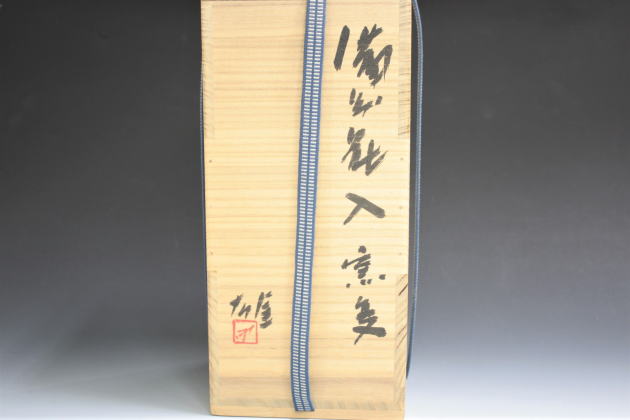 備前花入窯変
雄